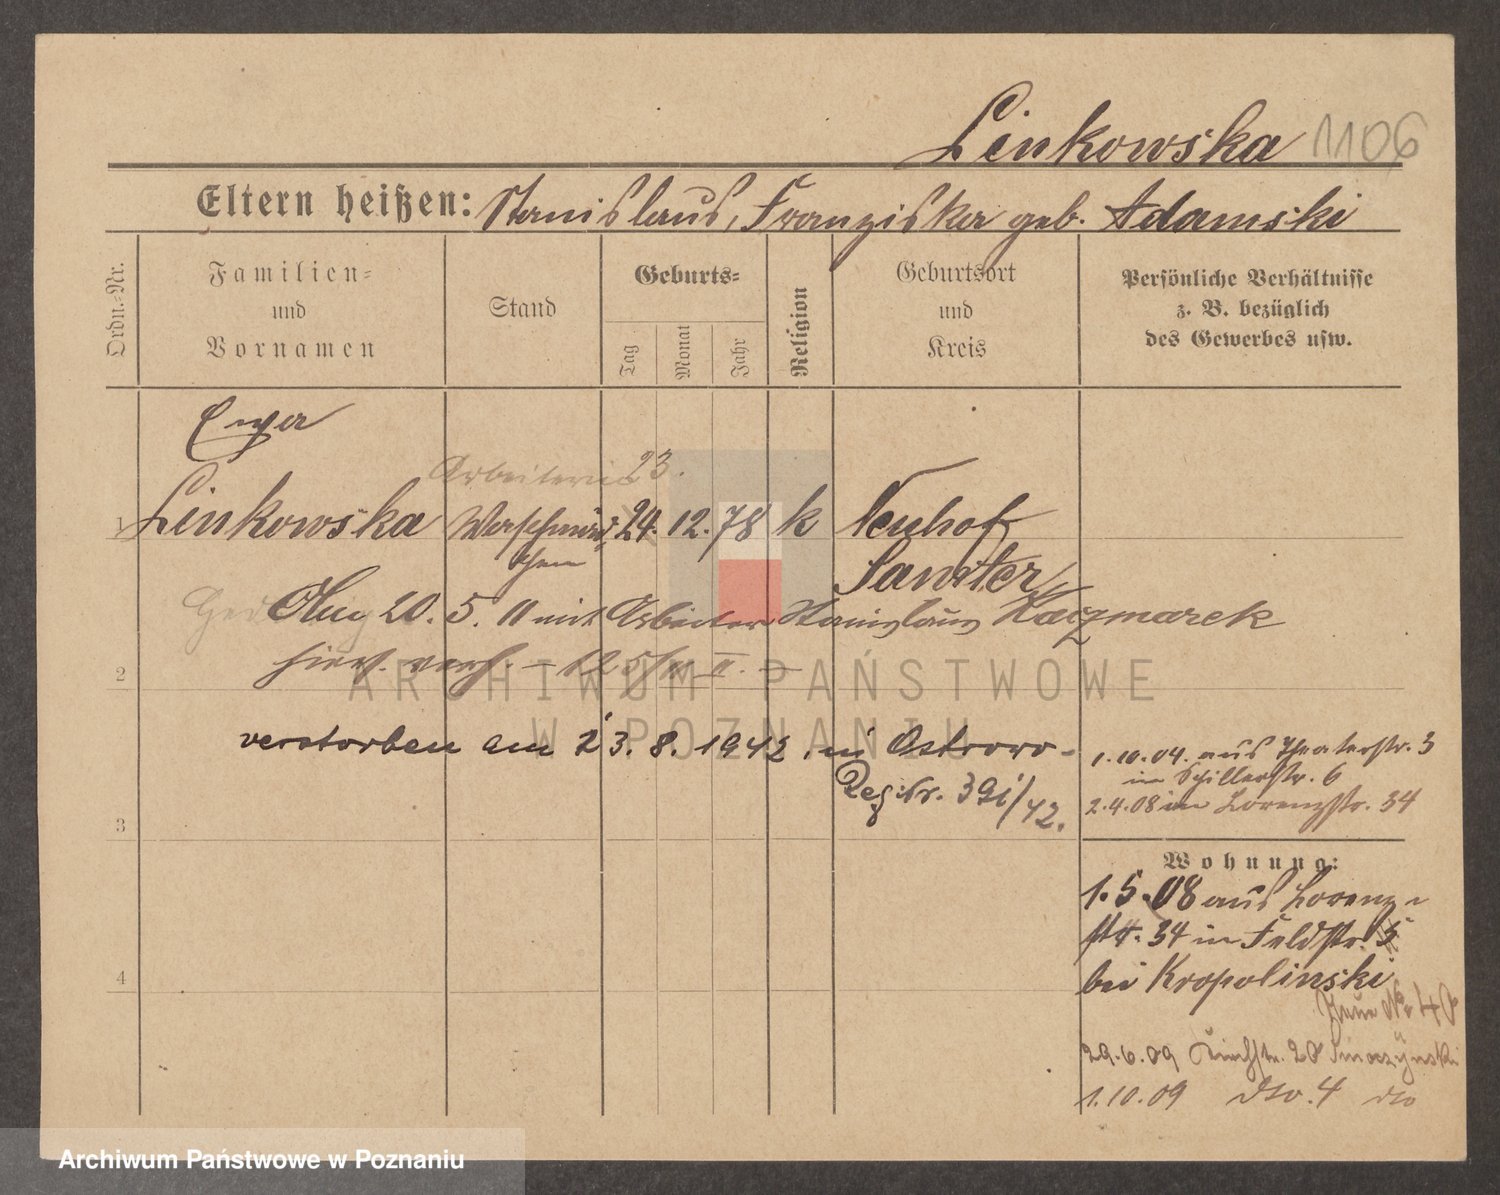 Linkowska 1106
Eltern heißen: Stanislaus, Franziska geb. Adamski
Ordn.=Nr.
Familien=
und
Vornamen
Stand
Geburts=
Tag
Monat
Jahr
Religion
Geburtsort
und
Kreis
Persönliche Verhältnisse
z. B. bezüglich
des Gewerbes usw.
Ewa
Arbeiterin 23.
1 Linkowska 24. 12. 78 k Neuhof
Samter
Am 20. 5. 11 mit Arbeiter Stanislaus Kaczmarek
2 hier verh.
verstorben am 23. 8. 1942 in Ostrowo-
Reg. Nr. 391/42.
1.10.04. aus Theaterstr. 3
in Schillerstr. 6
2.4.08 in Lorenzstr. 34
3
Wohnung:
1.5.08 aus Lorenz-
str. 34 in Feldstr. 5
bei Kropolinski
4
29.6.09 20 Smoczynski
1.10.09 dto. 4 dto
ARCHIWUM PAŃSTWOWE
W POZNANIU
Archiwum Państwowe w Poznaniu